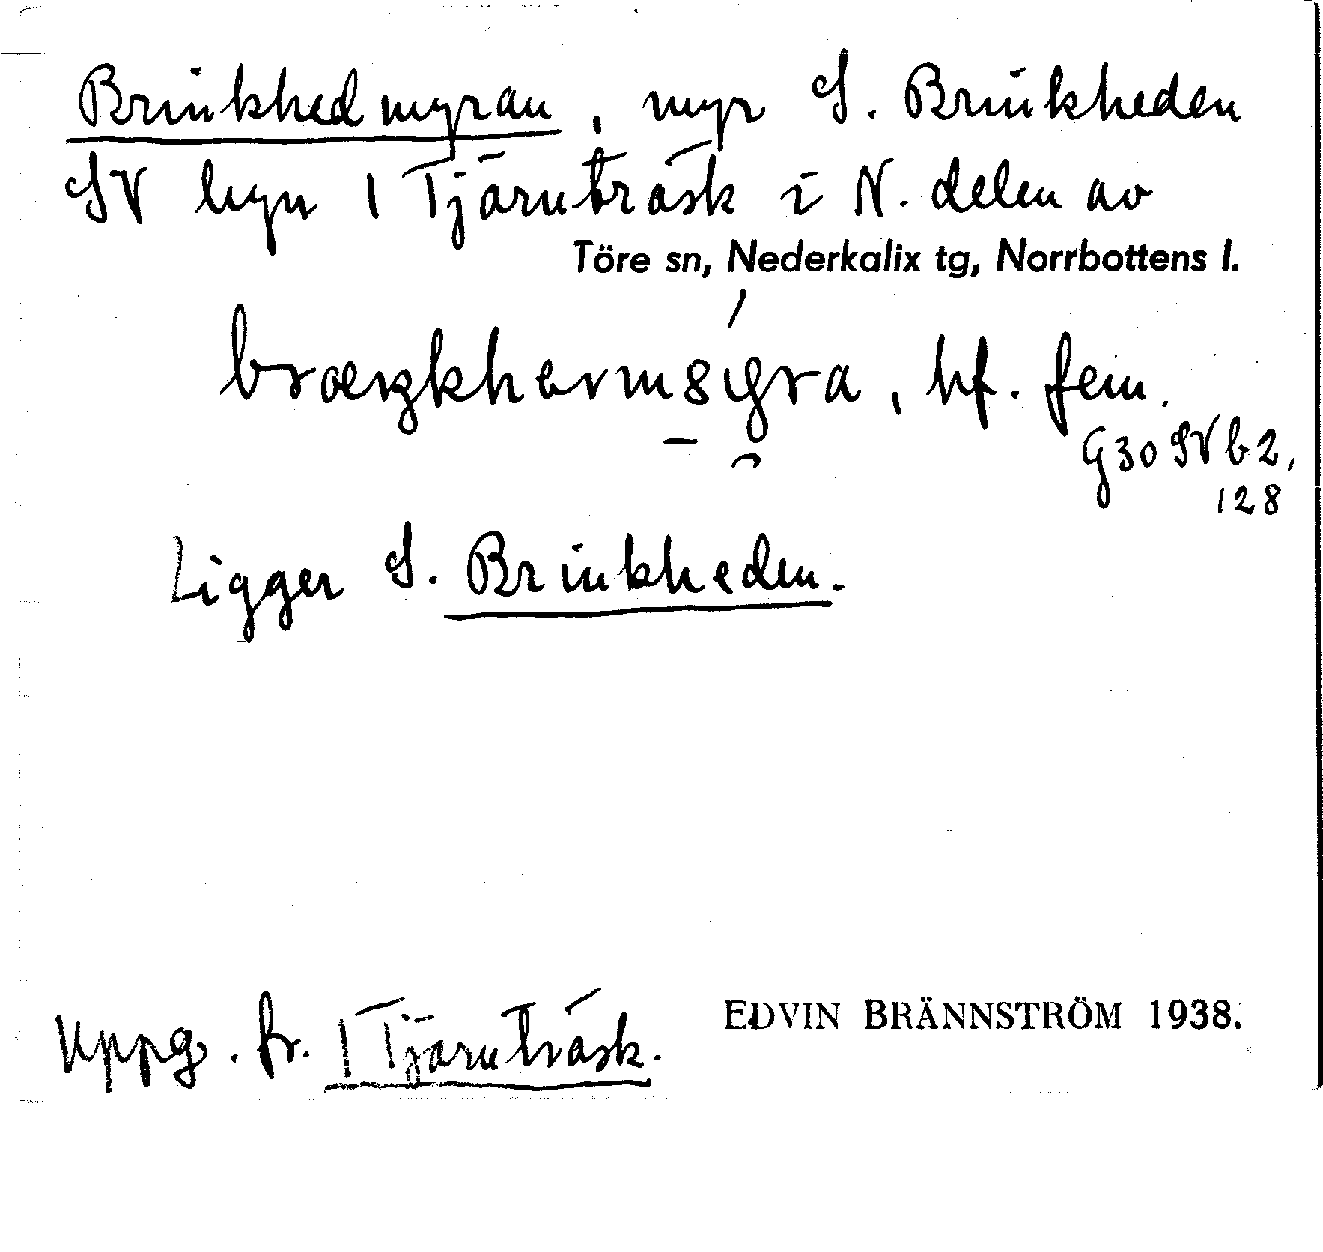 Brinkhedmyran, myr S. Brinkheden
SV byn 1 Tjärnträsk i N. delen av
Töre sn, Nederkalix tg, Norrbottens l.
hf. fem.
G30 SV b2,
128
Ligger S. Brinkheden.
Uppg. fr. 1 Tjärnträsk.
EDVIN BRÄNNSTRÖM 1938.